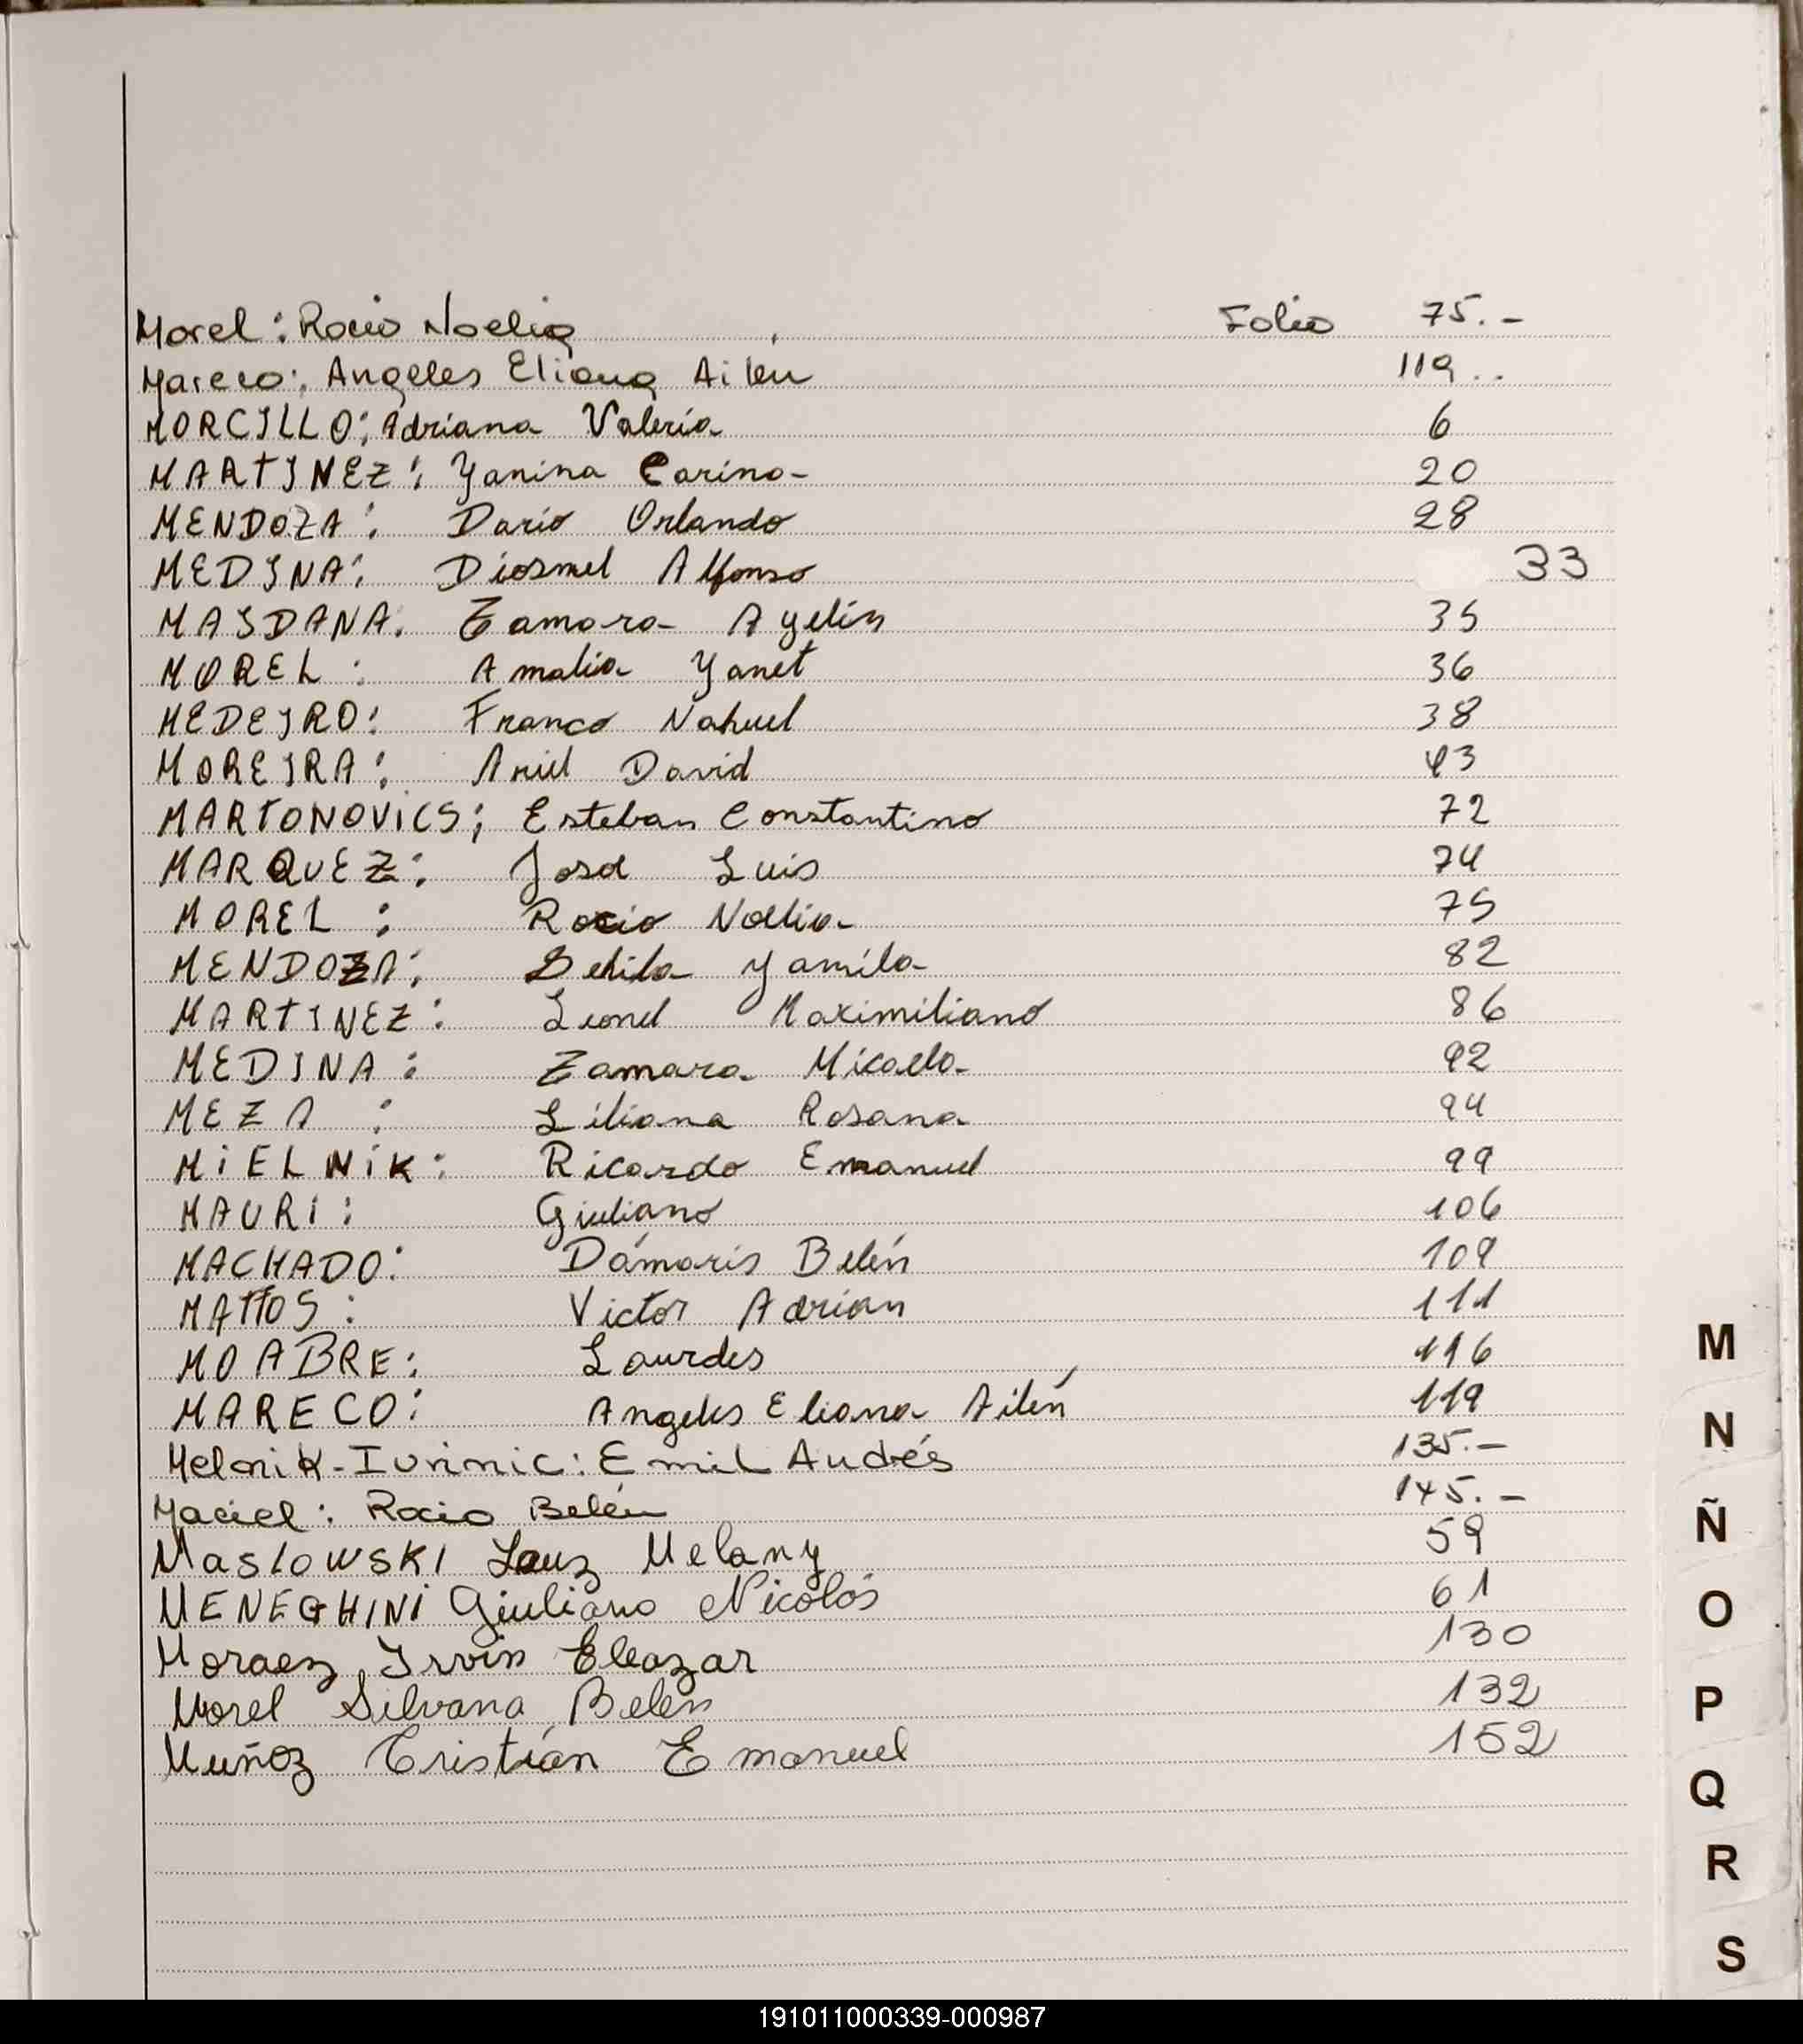 Morel: Rocio Noelia Folio 75.-
Mareco: Angeles Eliana Ailén 119..
MORCILLO: Adriana Valeria 6
MARTINEZ: Yanina Carina- 20
MENDOZA: Dario Orlando 28
MEDINA: Diosmel Alfonso 33
MAIDANA: Tamara Ayelén 35
MOREL: Amalia Yanet 36
MEDEIRO: Franco Nahuel 38
MOREIRA: Ariel David 43
MARTONOVICS: Esteban Constantino 72
MARQUEZ: José Luis 74
MOREL: Rocio Noelia 75
MENDOZA: Yamila 82
MARTINEZ: Leonel Maximiliano 86
MEDINA: Tamara Micaela 92
MEZA: Liliana Rosana 94
MiELNiK: Ricardo Emanuel 99
MAURI: Giuliano 106
MACHADO: Dámaris Belén 109
MATTOS: Victor Adrian 111
MOABRE: Lourdes 116
MARECO: Angeles Eliana Ailén 119
Melnik-Iurinic: Emil Andrés 135.-
Maciel: Rocio Belén 145.-
MASLOWSKI Luz Melany 59
MENEGHINI Giuliano Nicolás 61
Moraez Irvin Eleazar 130
Morel Silvana Belen 132
Muñoz Cristián Emanuel 152
M
N
Ñ
O
P
Q
R
S
191011000339-000987